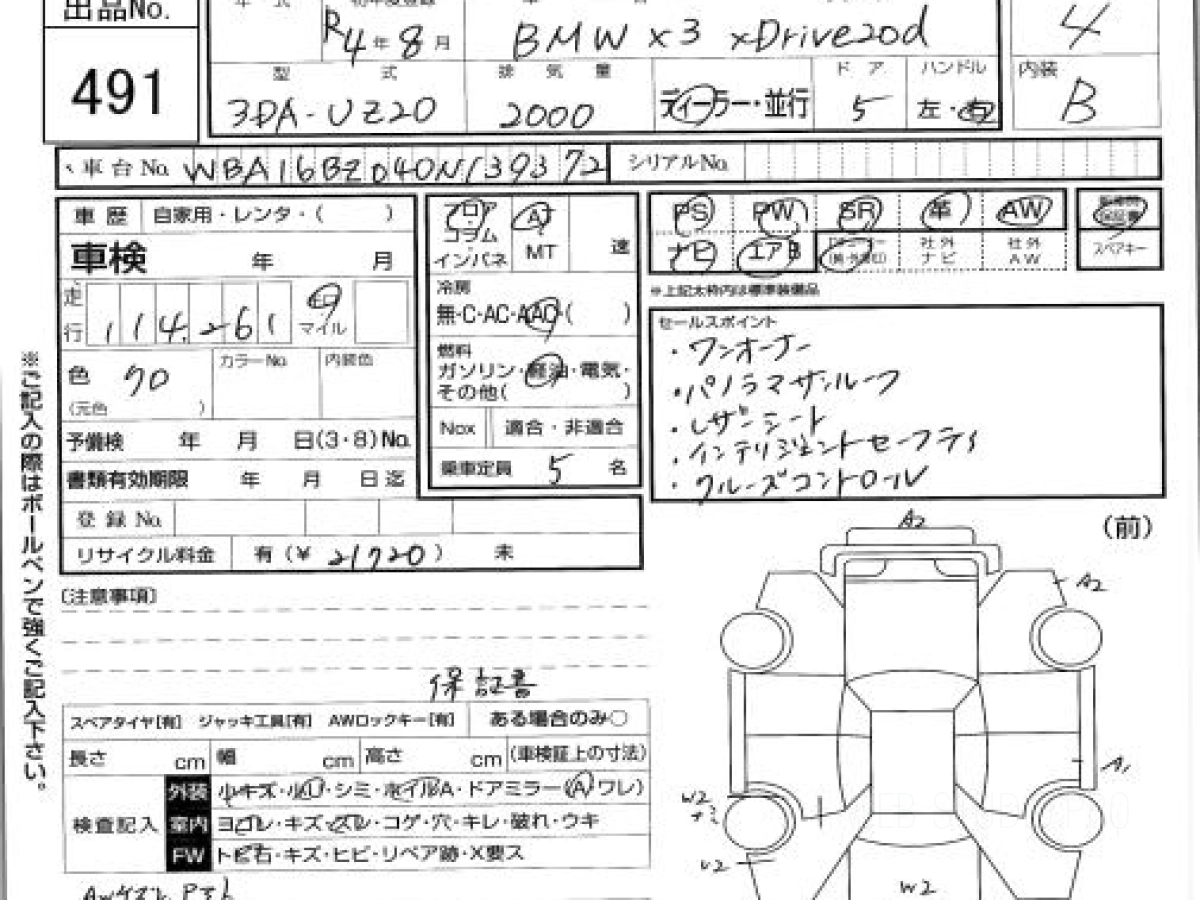 出品No.
491
年 式
初年度登録
R4年8月
BMW X3 xDrive20d
4
型 式
3DA-UZ20
排 気 量
2000
ディーラー・並行
ド ア
5
ハンドル
左・右
内装
B
車台No. WBA16BZ040N139372
シリアルNo.
車 歴 自家用・レンタ・( )
車検 年 月
走行 114,261 キロ マイル
色 クロ
(元色 )
カラーNo.
内装色
予備検 年 月 日(3・8)No.
書類有効期限 年 月 日迄
登 録 No.
リサイクル料金 有(¥ 21720 ) 未
フロア
コラム
インパネ
AT
MT
速
冷房
無・C・AC・AAC・( )
燃料
ガソリン・軽油・電気・
その他( )
Nox 適合・非適合
乗車定員 5 名
PS PW SR 革 AW
ナビ エアB
社外ナビ
社外AW
保証書
スペアキー
※上記太枠内は標準装備品
セールスポイント
・ワンオーナー
・パノラマサンルーフ
・レザーシート
・インテリジェントセーフティ
・クルーズコントロール
※ご記入の際はボールペンで強くご記入下さい。
〔注意事項〕
保証書
スペアタイヤ[有] ジャッキ工具[有] AWロックキー[有] ある場合のみ○
長さ cm 幅 cm 高さ cm (車検証上の寸法)
検査記入
外装 小キズ・小凹・シミ・ホイルA・ドアミラー(A・ワレ)
室内 ヨゴレ・キズ・スレ・コゲ・穴・キレ・破れ・ウキ
FW トビ石・キズ・ヒビ・リペア跡・X要ス
(前)
A2
A2
A1
W2
U2
W2